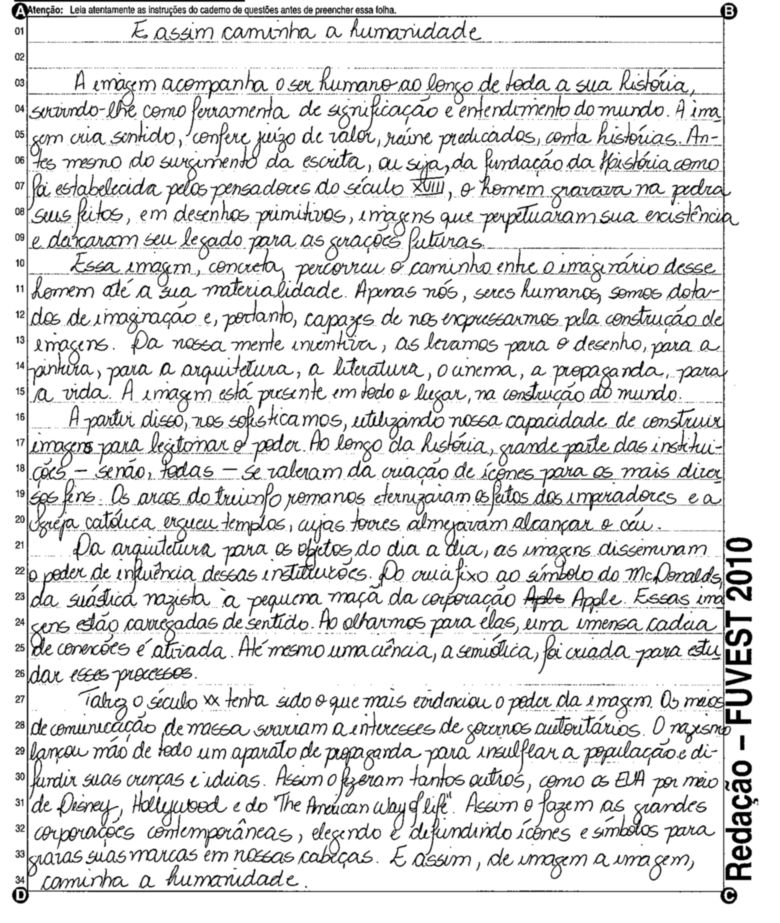 A Atenção: Leia atentamente as instruções do caderno de questões antes de preencher essa folha. B
01 E assim caminha a humanidade
02
03 A imagem acompanha o ser humano ao longo de toda a sua história,
04 servindo-lhe como ferramenta de significação e entendimento do mundo. A ima
05 gem cria sentido, confere juízo de valor, reúne predicados, conta histórias. An-
06 tes mesmo do surgimento da escrita, ou seja, da fundação da História como
07 foi estabelecida pelos pensadores do século XVIII, o homem gravava na pedra
08 seus feitos, em desenhos primitivos, imagens que perpetuaram sua existência
09 e deixaram seu legado para as gerações futuras.
10 Essa imagem, concreta, percorreu o caminho entre o imaginário desse
11 homem até a sua materialidade. Apenas nós, seres humanos, somos dota-
12 dos de imaginação e, portanto, capazes de nos expressarmos pela construção de
13 imagens. Da nossa mente inventiva, as levamos para o desenho, para a
14 pintura, para a arquitetura, a literatura, o cinema, a propaganda, para
15 a vida. A imagem está presente em todo o lugar, na construção do mundo.
16 A partir disso, nos sofisticamos, utilizando nossa capacidade de construir
17 imagens para legitimar o poder. Ao longo da história, grande parte das institui-
18 ções – senão, todas – se valeram da criação de ícones para os mais diver
19 sos fins. Os arcos do triunfo romanos eternizaram os feitos dos imperadores e a
20 Igreja católica ergueu templos, cujas torres almejavam alcançar o céu.
21 Da arquitetura para os objetos do dia a dia, as imagens disseminam
22 o poder de influência dessas instituições. Do crucifixo ao símbolo do McDonalds,
23 da suástica nazista à pequena maçã da corporação Aple Apple. Essas ima
24 gens estão carregadas de sentido. Ao olharmos para elas, uma imensa cadeia
25 de conexões é ativada. Até mesmo uma ciência, a semiótica, foi criada para estu
26 dar esses processos.
27 Talvez o século XX tenha sido o que mais evidenciou o poder da imagem. Os meios
28 de comunicação de massa serviram a interesses de governos autoritários. O nazismo
29 lançou mão de todo um aparato de propaganda para insuflar a população e di-
30 fundir suas crenças e ideias. Assim o fizeram tantos outros, como os EUA por meio
31 de Disney, Hollywood e do "The American way of life". Assim o fazem as grandes
32 corporações contemporâneas, elegendo e difundindo ícones e símbolos para
33 gravar suas marcas em nossas cabeças. E assim, de imagem a imagem,
34 caminha a humanidade.
D C
Redação – FUVEST 2010